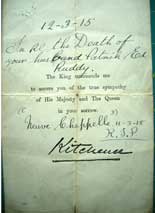 12-3-15
In Re. the Death of
your husband Patrick, Ed
Ruddy.
The King commands me
to assure you of the true sympathy
of His Majesty and The Queen
in your sorrow.
Neuve, Chappelle 11-3-15
R.I.P
Kitchener